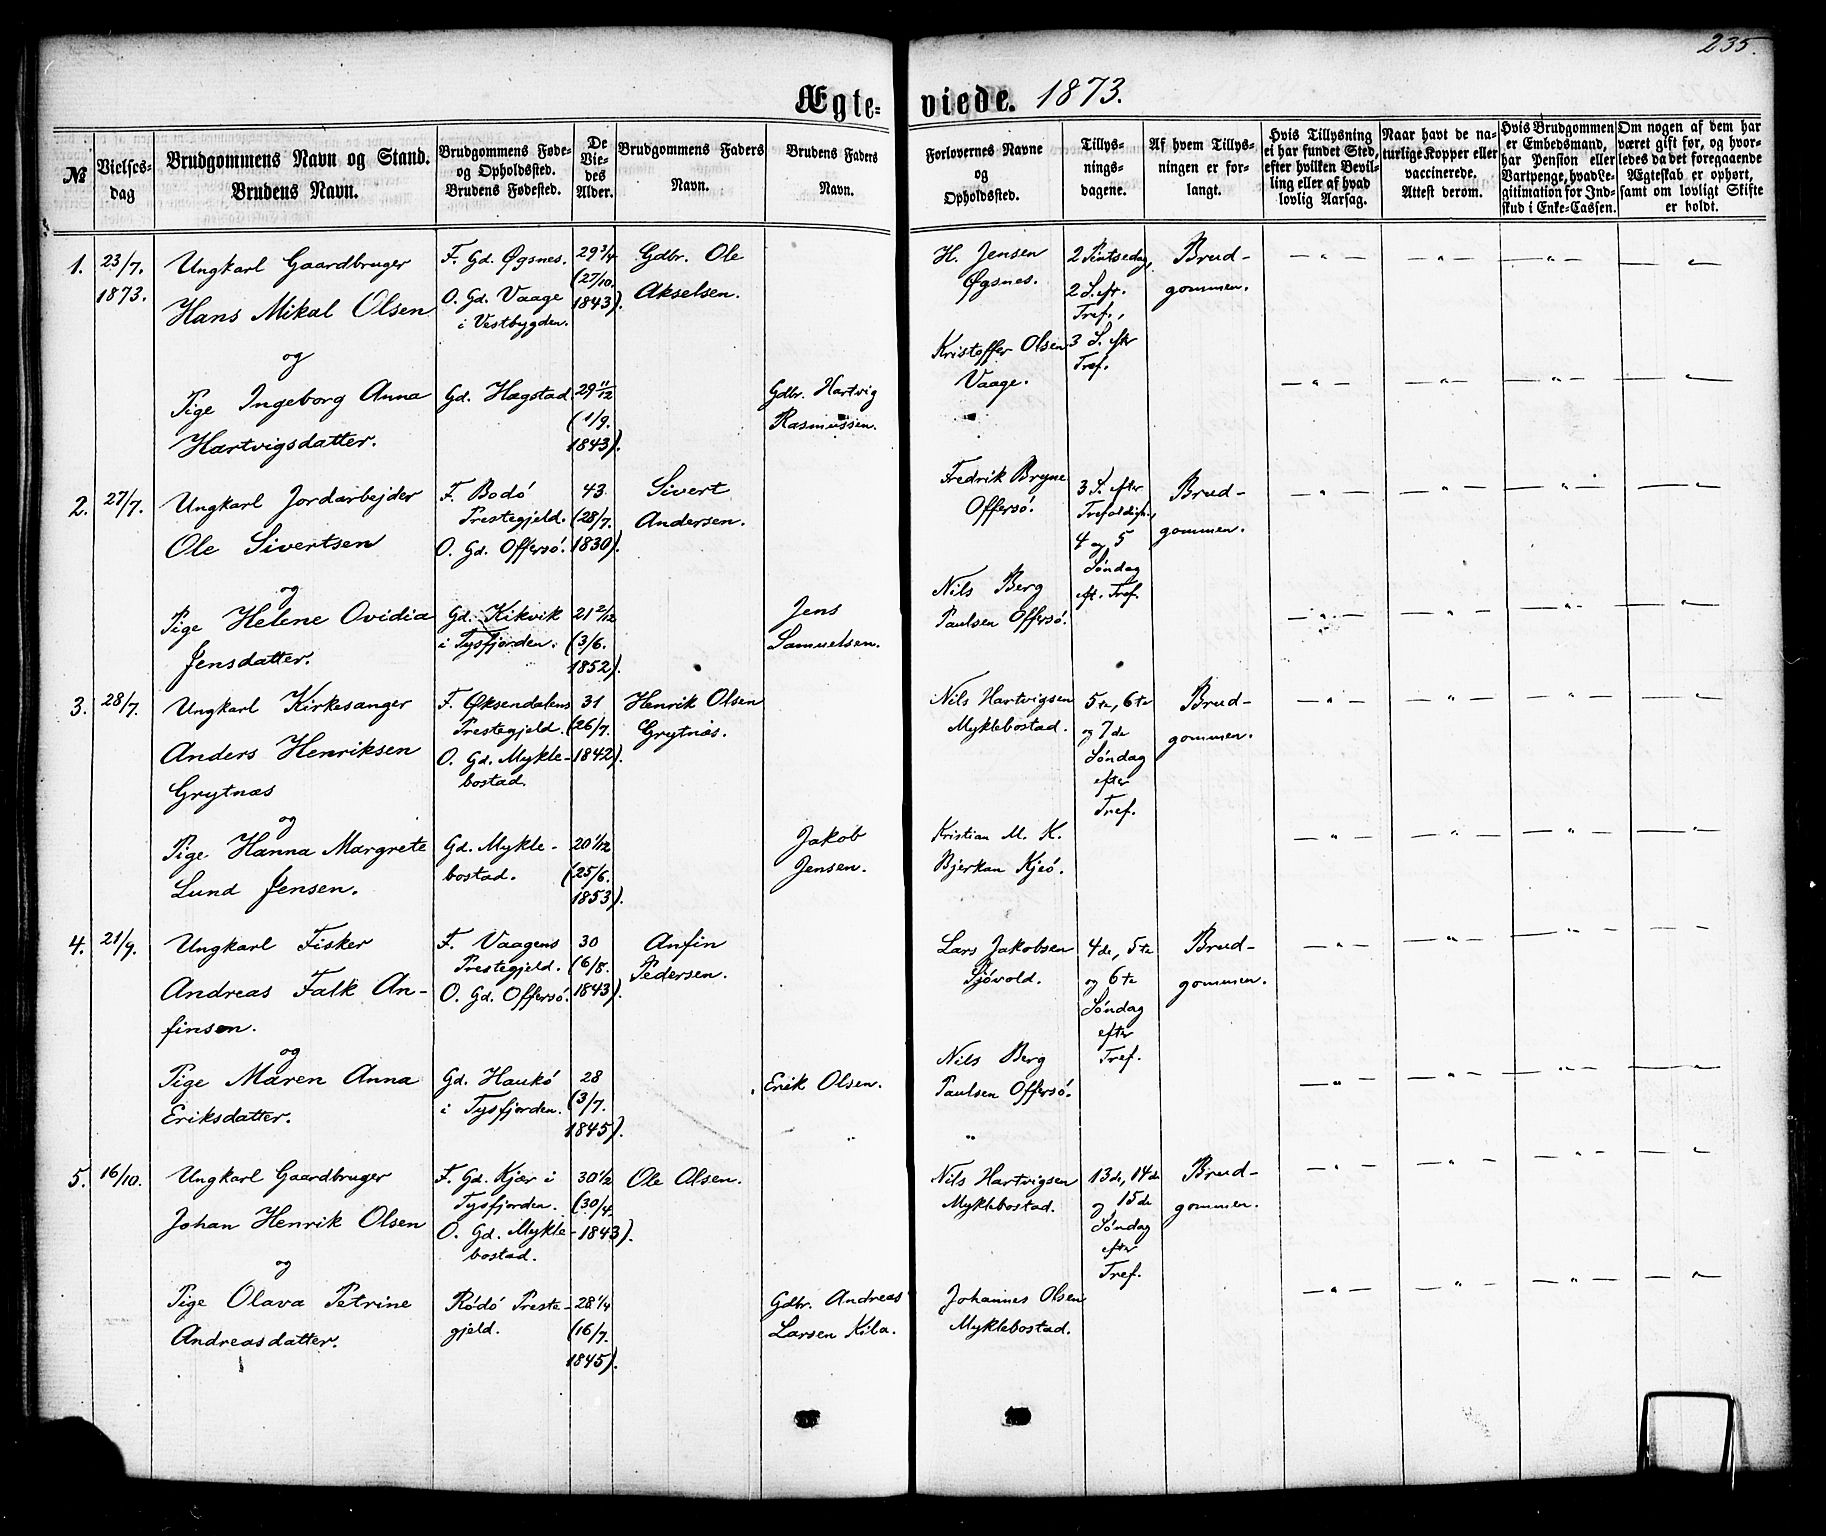 235.
Ægte-viede. 1873.
№
Vielses-dag
Brudgommens Navn og Stand.
Brudens Navn.
Brudgommens Føde- og Opholdssted.
Brudens Fødested.
De Viedes Alder.
Brudgommens Faders Navn.
Brudens Faders Navn.
Forlovernes Navne og Opholdssted.
Tillysningsdagene.
Af hvem Tillysningen er forlangt.
Hvis Tillysning ei har fundet Sted, efter hvilken Bevilling eller af hvad lovlig Aarsag.
Naar havt de naturlige Kopper eller vaccinerede. Attest derom.
Hvis Brudgommen er Embedsmand, har Pension eller Vartpenge, hvad Legitimation for Indskud i Enke-Cassen.
Om nogen af dem har været gift før, og hvorledes da det foregaaende Ægteskab er ophørt, samt om lovligt Skifte er holdt.
1.
23/7.
1873.
Ungkarl Gaardbruger
Hans Mikal Olsen
og
Pige Ingeborg Anna
Hartvigsdatter.
F. Gd. Øgsnes.
O. Gd. Vaage
i Vestbygden.
Gd. Hægstad
29 3/4
(27/10.
1843).
29 11/12
(1/9.
1843).
Gdbr. Ole
Akselsen.
Gdbr. Hartvig
Rasmussen.
H. Jensen
Øgsnes.
Kristoffer Olsen
Vaage.
2 Pintsedag,
2 S. eft.
Tref.,
3 S. eftr
Tref.
Brud-
gommen.
2.
27/7.
Ungkarl Jordarbejder
Ole Sivertsen
og
Pige Helene Ovidia
Jensdatter.
F. Bodö
Prestegjeld.
O. Gd. Offersö.
Gd. Kikvik
i Tysfjorden.
43
(28/7.
1830).
21 2/12
(3/6.
1852).
Sivert
Andersen.
Jens
Samuelsen.
Fredrik Bryne
Offersö.
Nils Berg
Paulsen Offersö.
3 S. efter
Trefoldigh.,
4 og 5
Söndag
eft. Tref.
Brud-
gommen.
3.
28/7.
Ungkarl Kirkesanger
Anders Henriksen
Grytnæs
og
Pige Hanna Margrete
Lund Jensen.
F. Øksendalens
Prestegjeld.
O. Gd. Mykle-
bostad.
Gd. Mykle-
bostad.
31
(26/7.
1842).
20 1/12
(25/6.
1853).
Henrik Olsen
Grytnæs.
Jakob
Jensen.
Nils Hartvigsen
Myklebostad.
Kristian M. K.
Bjerkan Kjeö.
5te, 6te
og 7de
Söndag
efter
Tref.
Brud-
gommen.
4.
21/9.
Ungkarl Fisker
Andreas Falk An-
finsen.
og
Pige Maren Anna
Eriksdatter.
F. Vaagens
Prestegjeld.
O. Gd. Offersö.
Gd. Haukö
i Tysfjorden.
30
(6/8.
1843).
28
(3/7.
1845).
Anfin
Pedersen.
Erik Olsen.
Lars Jakobsen
Sjövold.
Nils Berg
Paulsen Offersö.
4de, 5te
og 6te
Söndag
efter
Tref.
Brud-
gommen.
5.
16/10.
Ungkarl Gaardbruger
Johan Henrik Olsen
og
Pige Olava Petrine
Andreasdatter.
F. Gd. Kjær i
Tysfjorden.
O. Gd. Mykle-
bostad.
Rödö Preste-
gjeld.
30 1/2
(30/4.
1843).
28 1/4
(16/7.
1845).
Ole Olsen.
Gdbr. Andreas
Larsen Kila.
Nils Hartvigsen
Myklebostad.
Johannes Olsen
Myklebostad.
13de, 14de
og 15de
Söndag
efter
Tref.
Brud-
gommen.